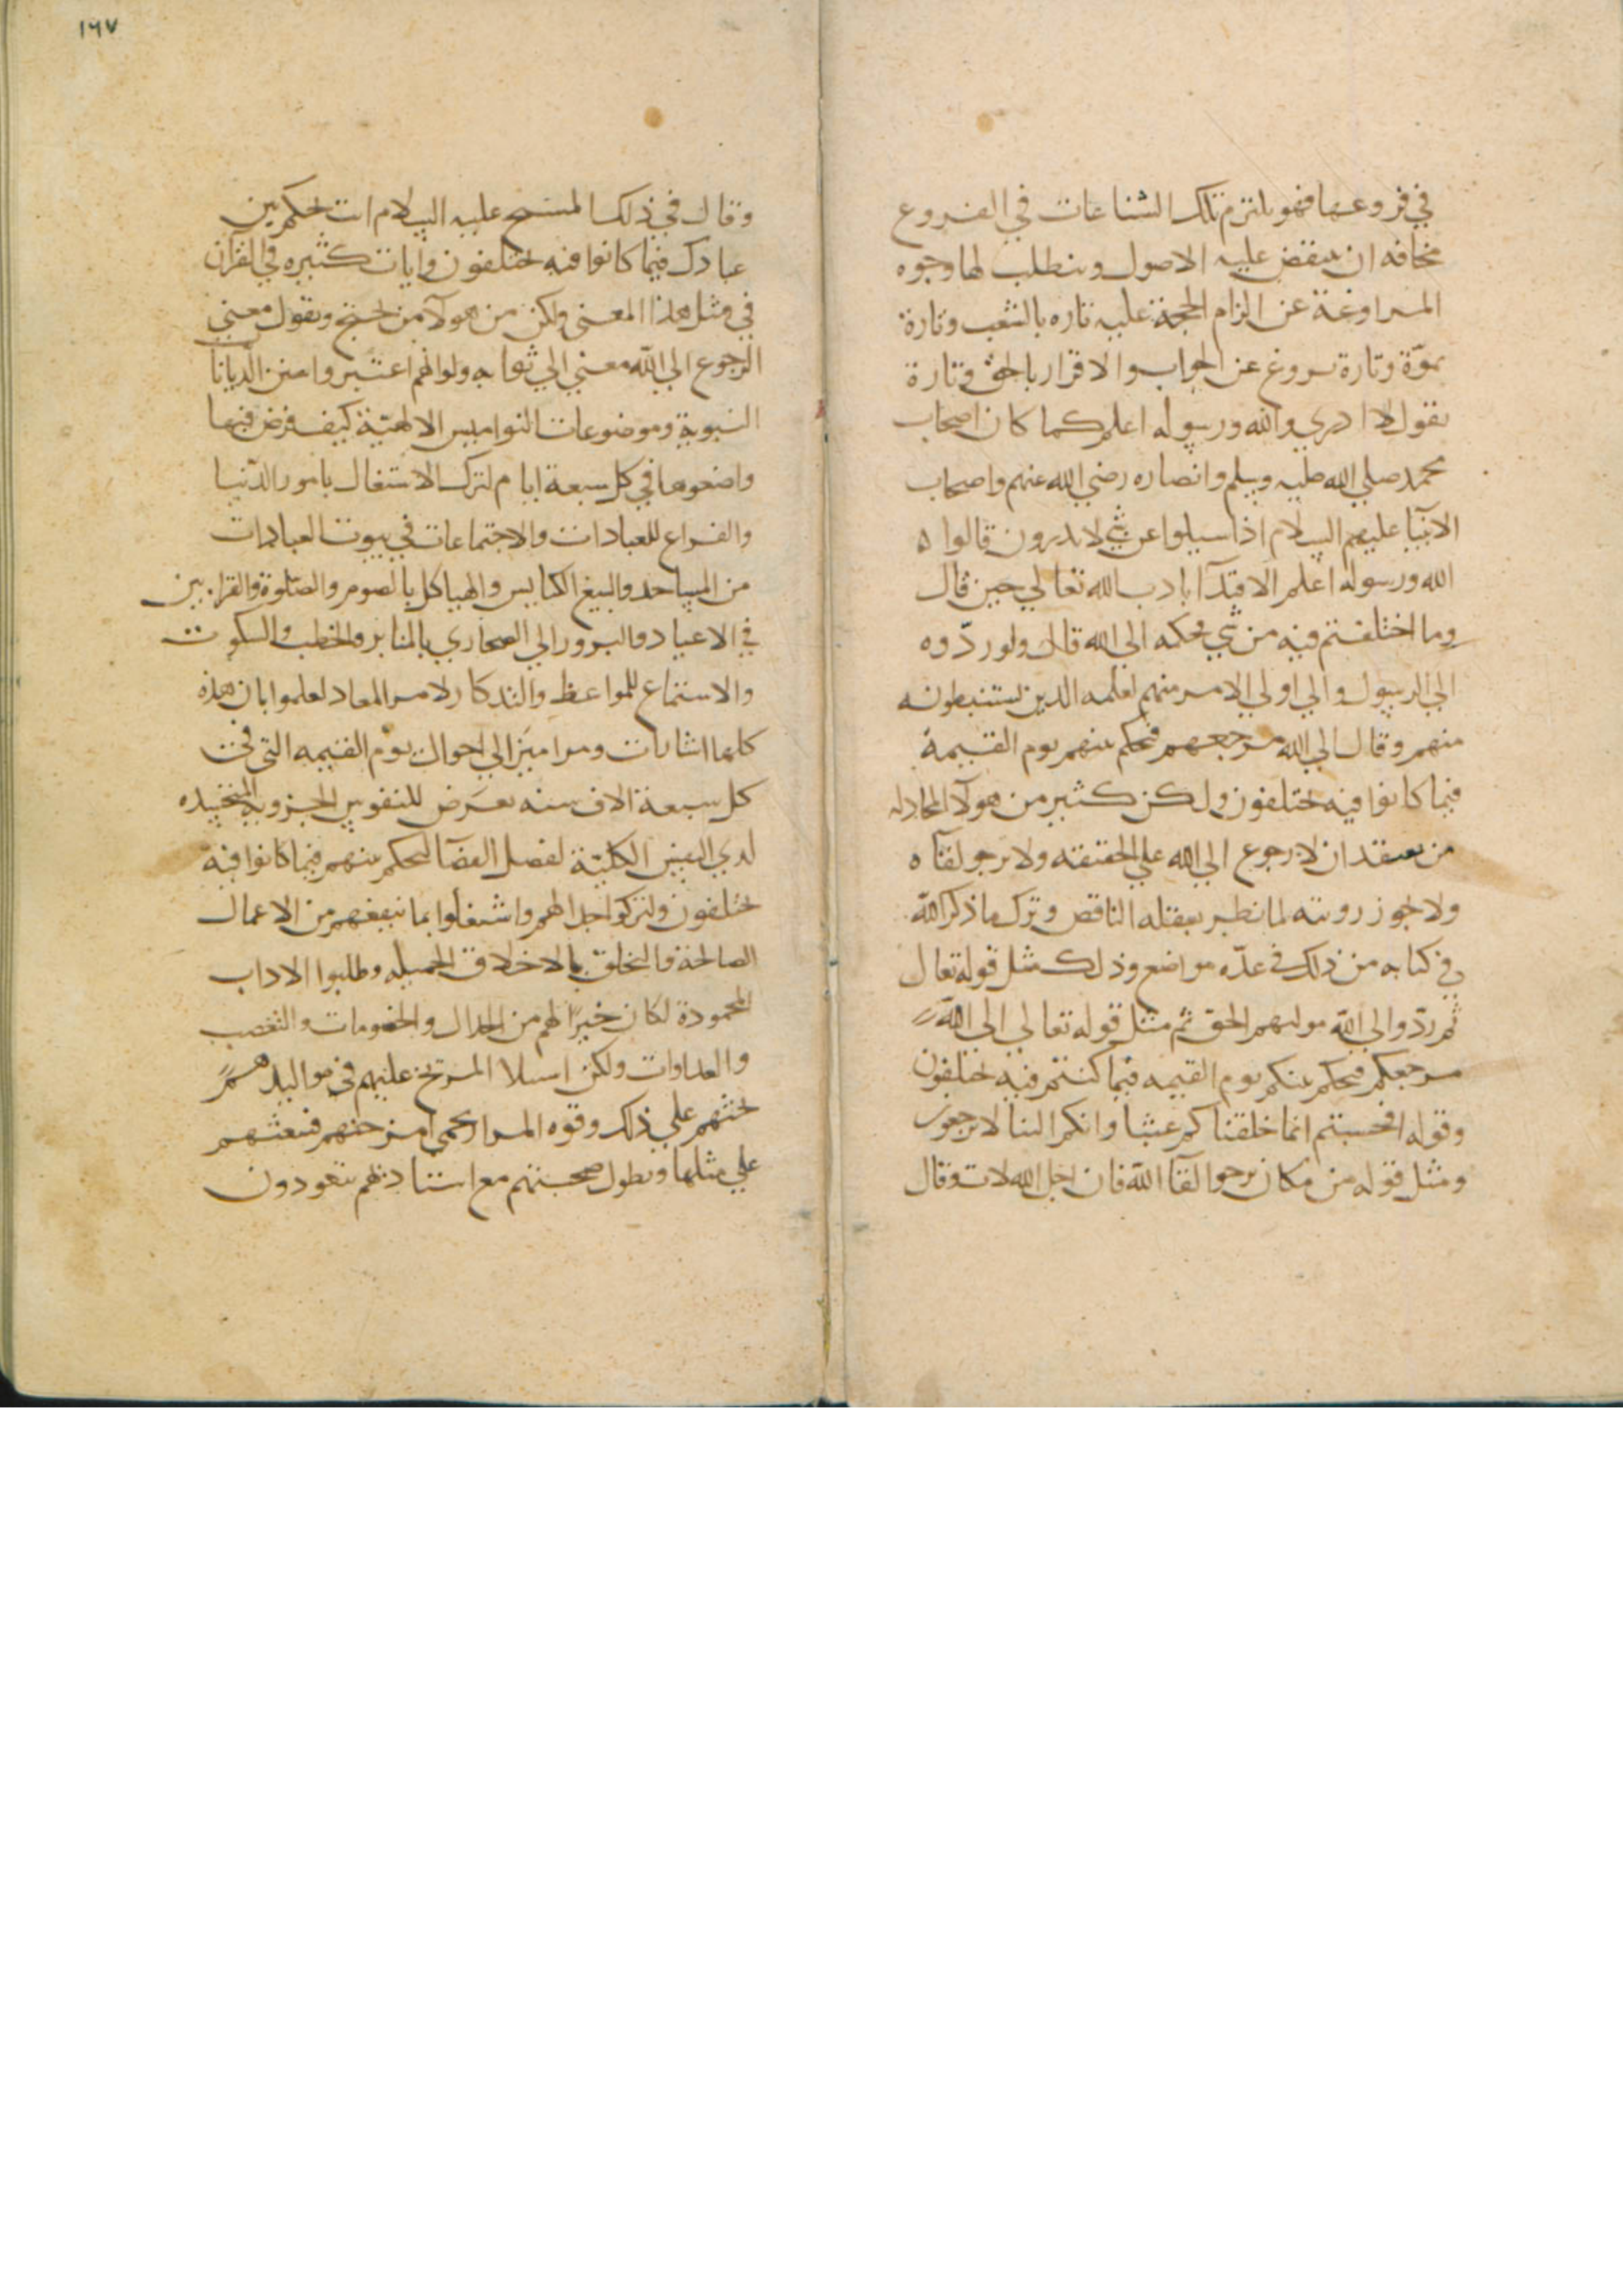 في فروعها فهو يلتزم تلك الشناعات في الفروع
مخافه ان ينقض عليه الاصول ويطلب لها وجوه
المراوغة عن الزام الحجة عليه تاره بالشغب وتارة
يموّة وتارة يروغ عن الجواب والاقرار بالحق وتارة
يقول لا ادري والله ورسوله اعلم كما كان اصحاب
محمد صلي الله عليه وسلم وانصاره رضي الله عنهم واصحاب
الانبيا عليهم السلام اذا سيلوا عن شي لا يدرون قالوا
الله ورسوله اعلم الاقتدآ بادب الله تعالي حين قال
وما اختلفتم فيه من شي فحكمه الي الله قال ولو ردّوه
الي الرسول والي اولي الامر منهم لعلمه الذين يستنبطونه
منهم وقال الي الله مرجعهم فيحكم بينهم يوم القيمة
فيما كانوا فيه يختلفون ولكن كثير من هولآ المجادله
من يعتقد ان لا رجوع الي الله علي الحقيقه ولا يرجو لقآه
ولا يجوز رويته لما نظر بعقله الناقص وترك ما ذكر الله
في كتابه من ذلك في عدّه مواضع وذلك مثل قوله تعال
ثم ردّوا الي الله موليهم الحق ثم مثل قوله تعالي الي الله
مرجعكم فيحكم بينكم يوم القيمه فيما كنتم فيه يختلفون
وقوله افحسبتم انما خلقناكم عبثا وانكم الينا لا ترجعون
ومثل قوله من كان يرجوا لقآ الله فان اجل الله لات وقال
١٦٧
وقال في ذلك المسيح عليه السلام انت تحكم بين
عبادك فيما كانوا فيه يختلفون وايات كثيره في القرآن
في مثل هذا المعني ولكن من هولآ من يحتج ويقول معني
الرجوع الي الله معني الي ثوابه ولو انهم اعتبروا من الديانا
النبوية وموضوعات النواميس الالهيّة كيف فرض فيها
واضعوها في كل سبعة ايام لترك الاشتغال بامور الدنيا
والفراغ للعبادات والاجتماعات في بيوت العبادات
من المساجد والبيع الكنايس والهياكل بالصوم والصّلوة والقرابين
في الاعياد والبرور الي الصحاري بالمنابر والخطب والسكوت
والاستماع للمواعظ والتذكار لامر المعاد لعلموا بان هذه
كلها اشارات ومراميز الي احوال يوم القيمه التي في
كل سبعة الاف سنه تعرض للنفوس الجزوية المتجسده
لدي النفس الكليّة لفصل القضآ ليحكم بينهم فيما كانوا فيه
يختلفون ولتركوا جدالهم واشتغلوا بما ينفعهم من الاعمال
الصالحة والتخلق بالاخلاق الجميله وطلبوا الاداب
المحمودة لكان خيرًا لهم من الجدال والخصومات والتعصب
والعداوات ولكن استيلا المريخ عليهم في مواليدهم
يحثهم علي ذلك وقوه المرار يحمي امزجتهم فتبعثهم
علي مثلها وتطول صحبتهم مع استاديهم يتعودون